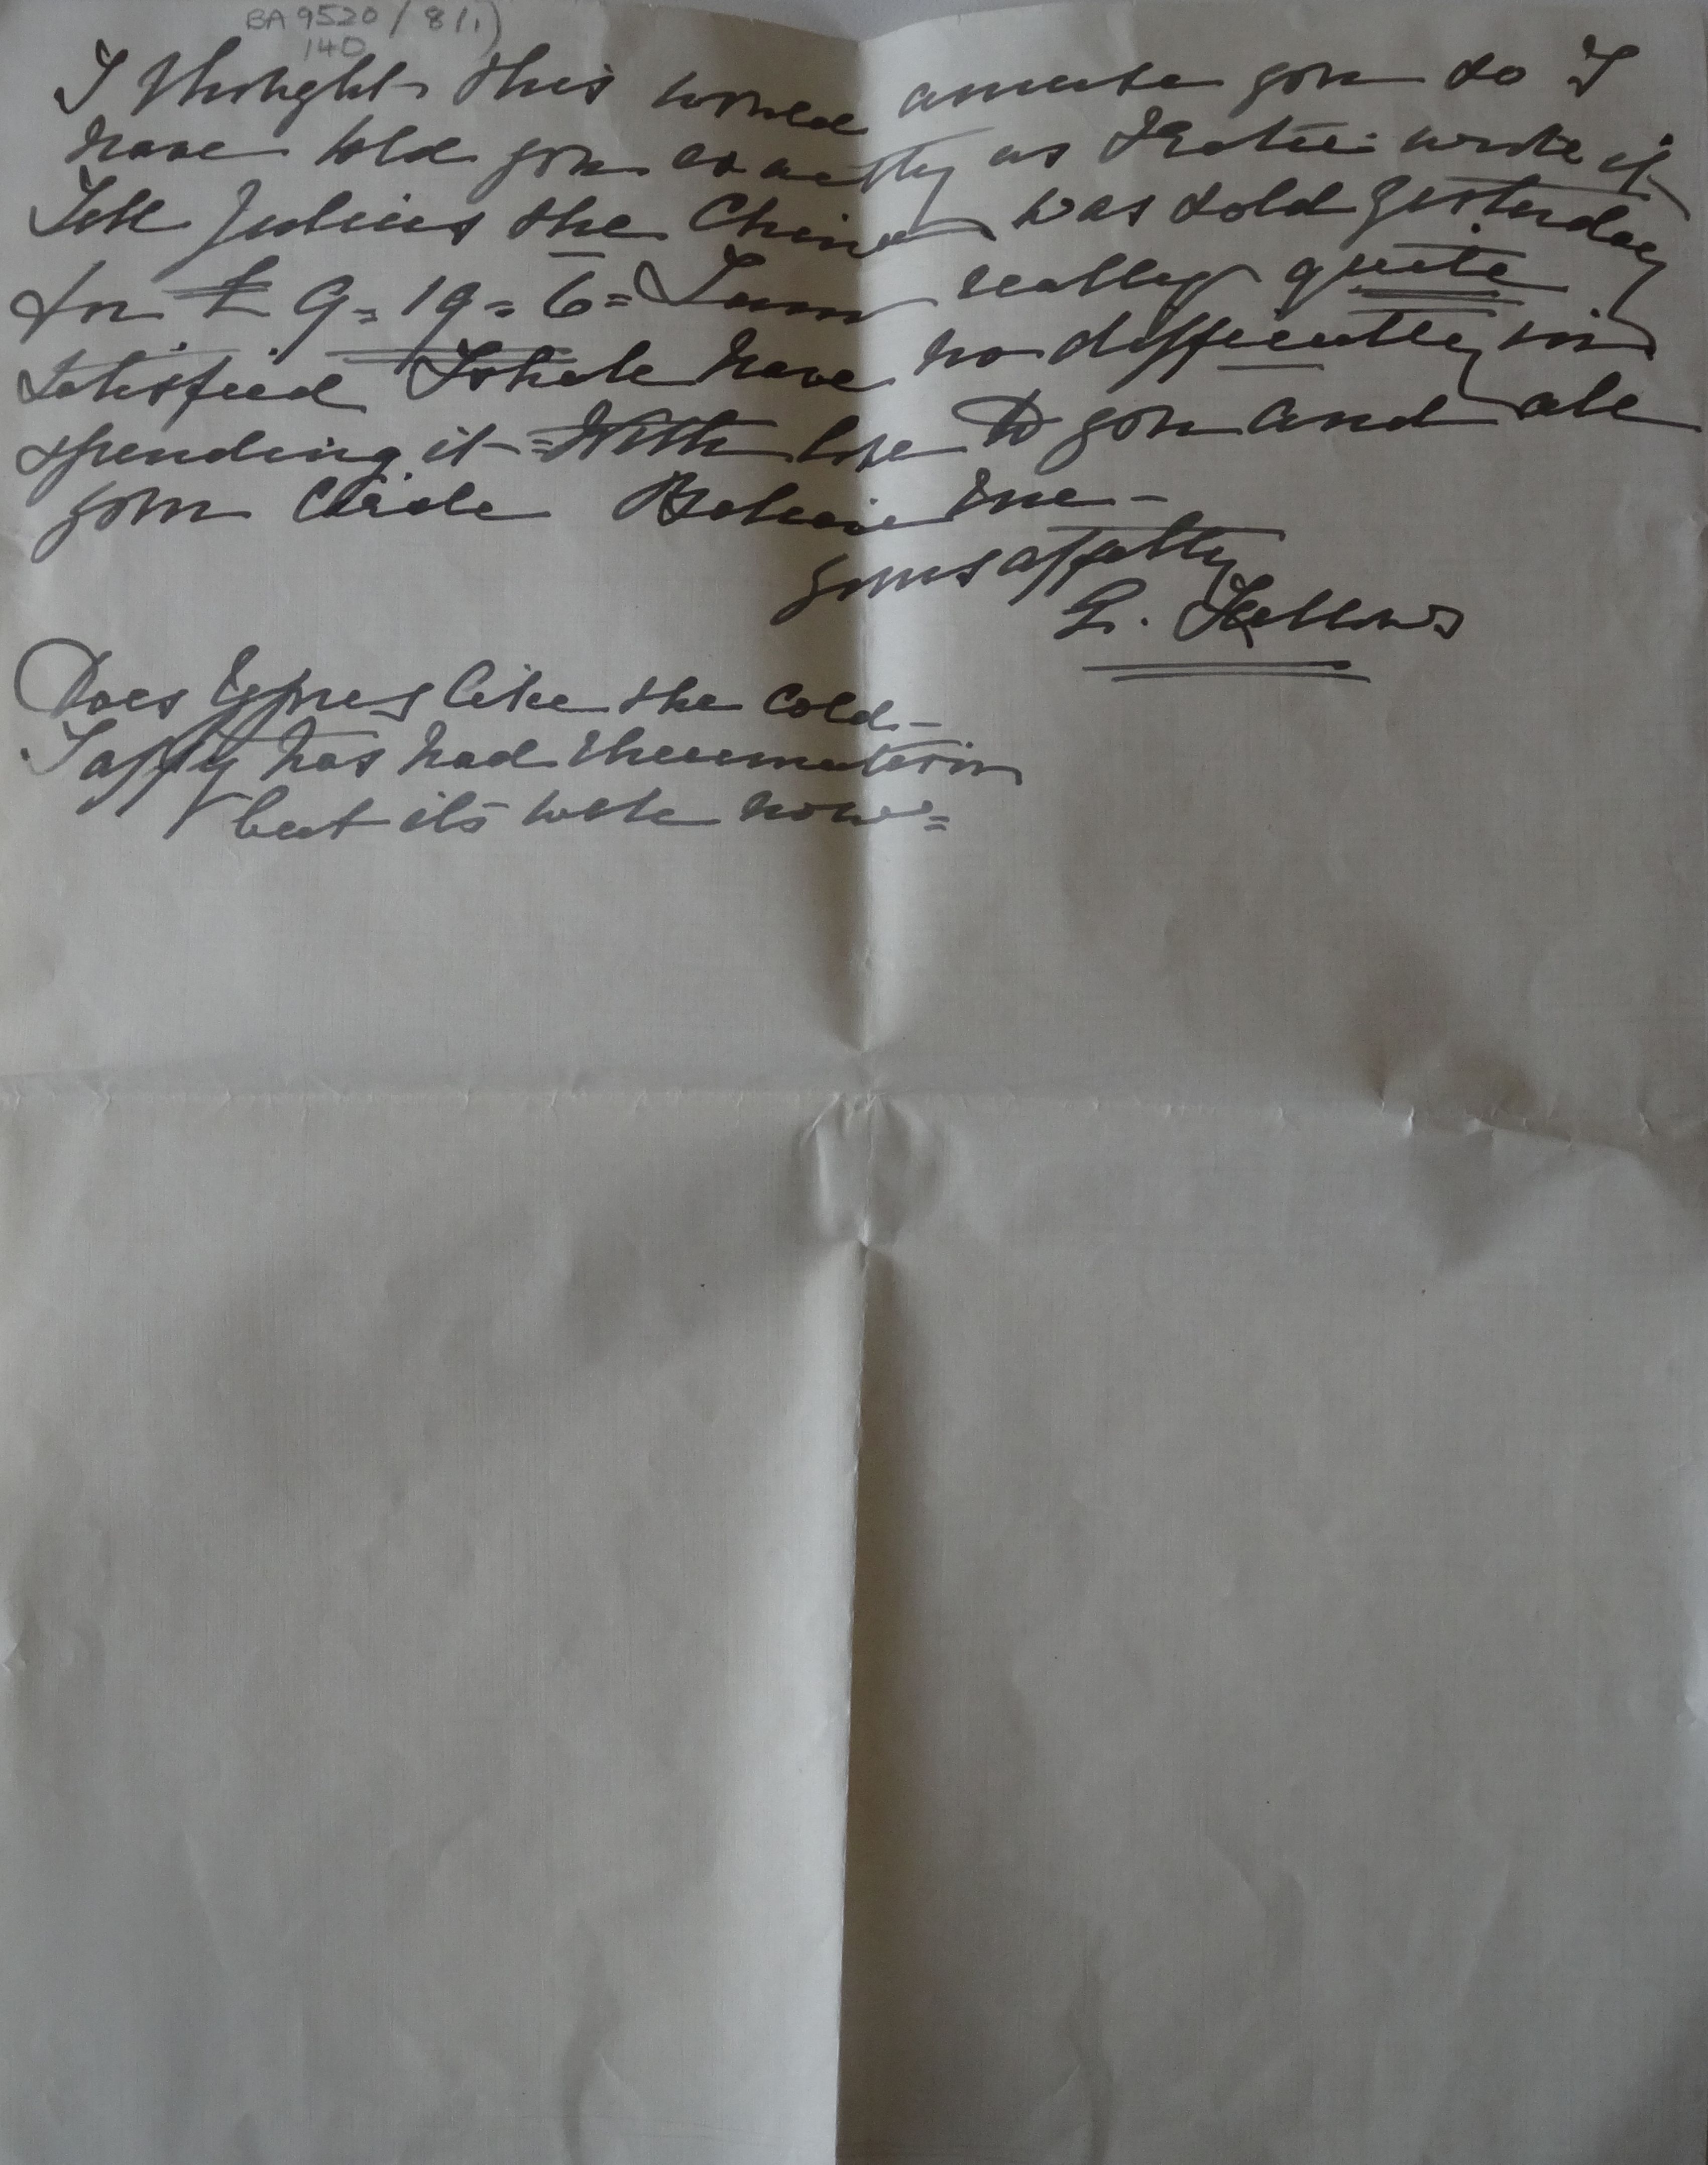 BA 9520/8(1)
140
I thought this would amuse you so I
have told you exactly as Katie wrote it
Tell Julius the China was sold yesterday
for £9=19=6= I am really quite
satisfied I shall have no difficulty in
spending it = With love to you and all
your Circle Believe me -
yours affectly
G. Fellows
Does Ypres like the cold -
Taffy has had rheumatism
but is well now =